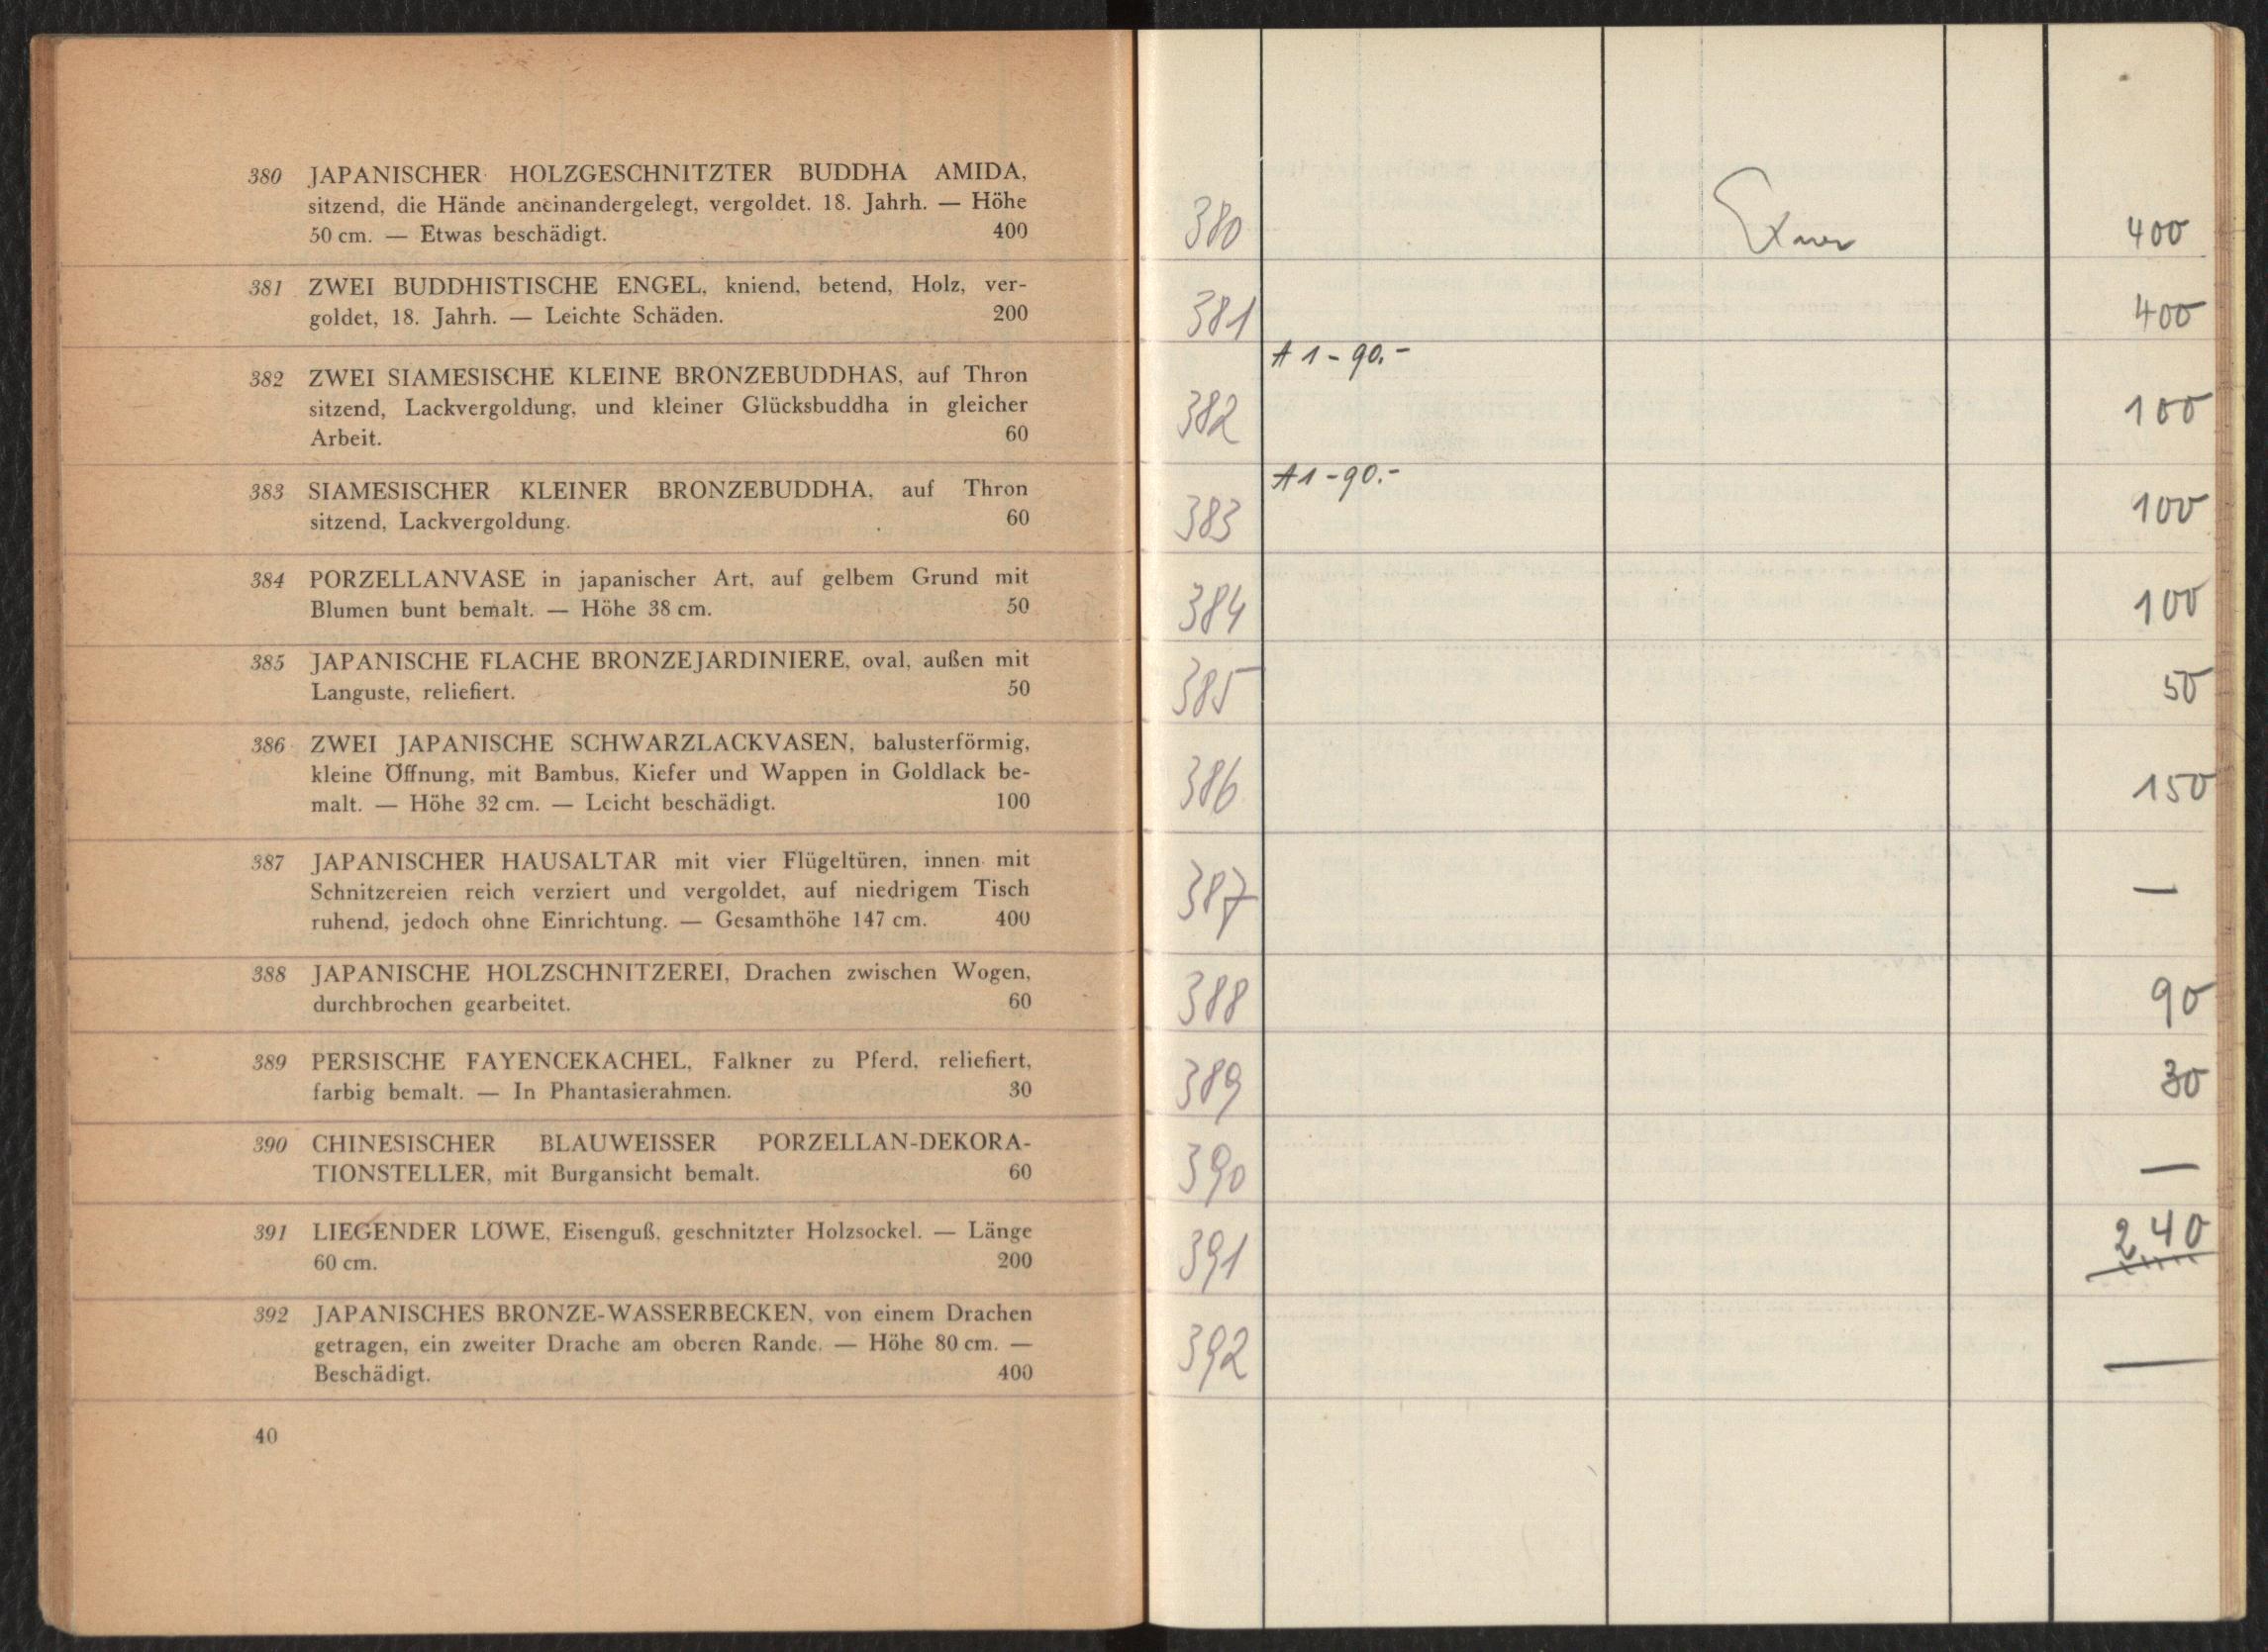 380 JAPANISCHER HOLZGESCHNITZTER BUDDHA AMIDA,
sitzend, die Hände aneinandergelegt, vergoldet. 18. Jahrh. — Höhe
50 cm. — Etwas beschädigt. 400
381 ZWEI BUDDHISTISCHE ENGEL, kniend, betend, Holz, ver-
goldet, 18. Jahrh. — Leichte Schäden. 200
382 ZWEI SIAMESISCHE KLEINE BRONZEBUDDHAS, auf Thron
sitzend, Lackvergoldung, und kleiner Glücksbuddha in gleicher
Arbeit. 60
383 SIAMESISCHER KLEINER BRONZEBUDDHA, auf Thron
sitzend, Lackvergoldung. 60
384 PORZELLANVASE in japanischer Art, auf gelbem Grund mit
Blumen bunt bemalt. — Höhe 38 cm. 50
385 JAPANISCHE FLACHE BRONZEJARDINIERE, oval, außen mit
Languste, reliefiert. 50
386 ZWEI JAPANISCHE SCHWARZLACKVASEN, balusterförmig,
kleine Öffnung, mit Bambus, Kiefer und Wappen in Goldlack be-
malt. — Höhe 32 cm. — Leicht beschädigt. 100
387 JAPANISCHER HAUSALTAR mit vier Flügeltüren, innen mit
Schnitzereien reich verziert und vergoldet, auf niedrigem Tisch
ruhend, jedoch ohne Einrichtung. — Gesamthöhe 147 cm. 400
388 JAPANISCHE HOLZSCHNITZEREI, Drachen zwischen Wogen,
durchbrochen gearbeitet. 60
389 PERSISCHE FAYENCEKACHEL, Falkner zu Pferd, reliefiert,
farbig bemalt. — In Phantasierahmen. 30
390 CHINESISCHER BLAUWEISSER PORZELLAN-DEKORA-
TIONSTELLER, mit Burgansicht bemalt. 60
391 LIEGENDER LÖWE, Eisenguß, geschnitzter Holzsockel. — Länge
60 cm. 200
392 JAPANISCHES BRONZE-WASSERBECKEN, von einem Drachen
getragen, ein zweiter Drache am oberen Rande. — Höhe 80 cm. —
Beschädigt. 400
40
380 Exner 400
381 400
A 1 - 90.-
382 100
A 1 - 90.-
383 100
384 100
385 50
386 150
387 —
388 90
389 30
390 —
391 240
392 —